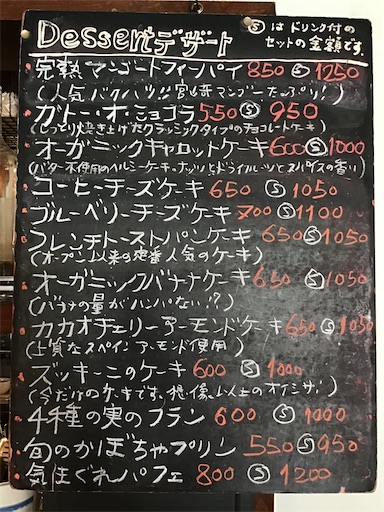 Dessertデザート
Ⓢはドリンク付の
セットの金額です。
完熟マンゴートフィーパイ 850 Ⓢ 1250
(人気バクハツ!!宮崎マンゴーたっぷり!)
ガトー・オ・ショコラ 550 Ⓢ 950
(しっとり焼き上げたクラッシックタイプのチョコレートケーキ)
オーガニックキャロットケーキ 600 Ⓢ 1000
(バター不使用のヘルシーケーキ。ナッツとドライフルーツとスパイスの香り)
コーヒーチーズケーキ 650 Ⓢ 1050
ブルーベリーチーズケーキ 700 Ⓢ 1100
フレンチトーストパンケーキ 650 Ⓢ 1050
(オープン以来の定番人気のケーキ)
オーガニックバナナケーキ 650 Ⓢ 1050
(バナナの量がハンパない!?)
カカオチェリーアーモンドケーキ 650 Ⓢ 1050
(上質なスペインアーモンド使用)
ズッキーニのケーキ 600 Ⓢ 1000
(今だけのケーキです。想像以上のオイシサ!)
4種の実のフラン 600 Ⓢ 1000
旬のかぼちゃプリン 550 Ⓢ 950
気まぐれパフェ 800 Ⓢ 1200